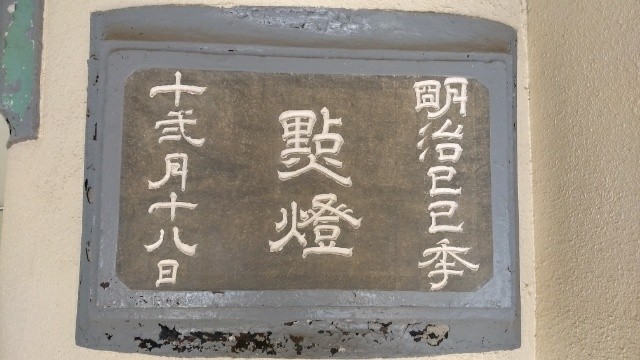 明治己巳季
點燈
十弎月十八日